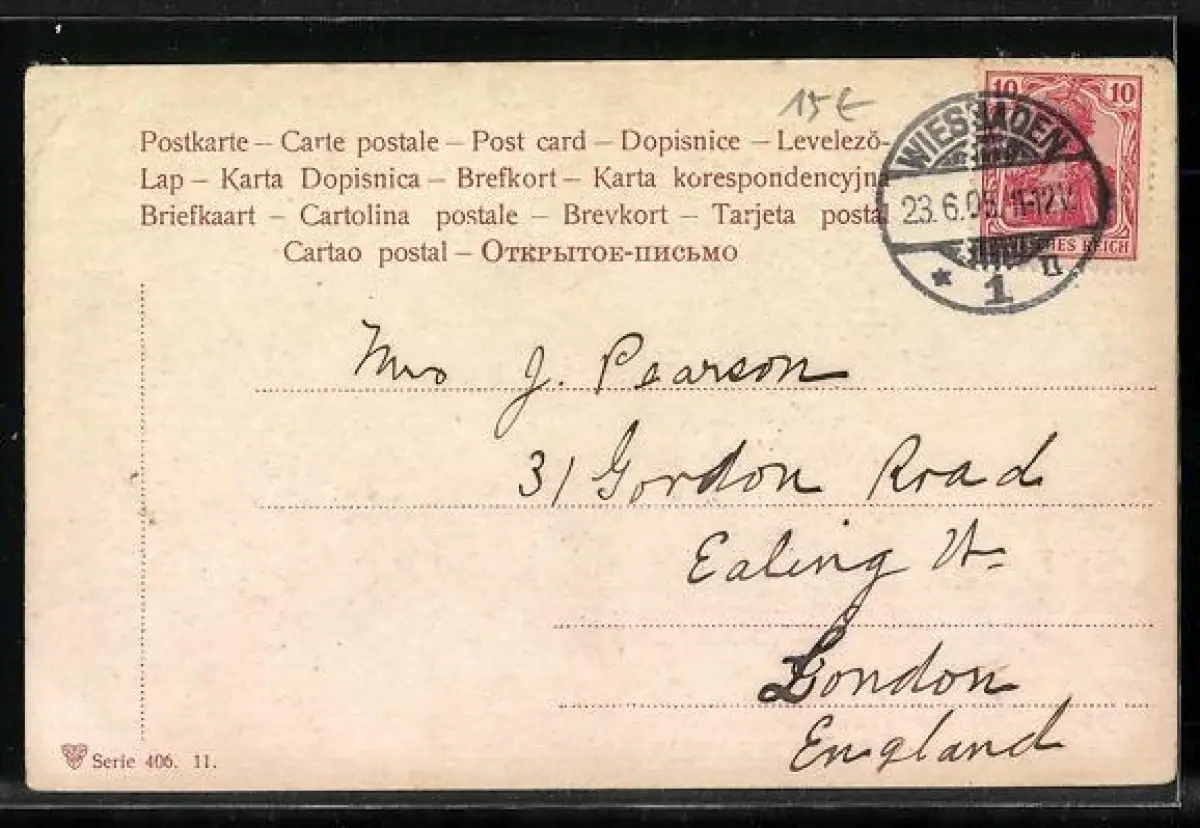 15€
Postkarte – Carte postale – Post card – Dopisnice – Levelező-
Lap – Karta Dopisnica – Brefkort – Karta korespondencyjna
Briefkaart – Cartolina postale – Brevkort – Tarjeta postal
Cartao postal – Открытое-письмо
10 10
REICH
WIESBADEN
23.6.05. 11-12V.
* 1 n
Mrs J. Pearson
31 Gordon Road
Ealing W.
London
England
Serie 406. 11.